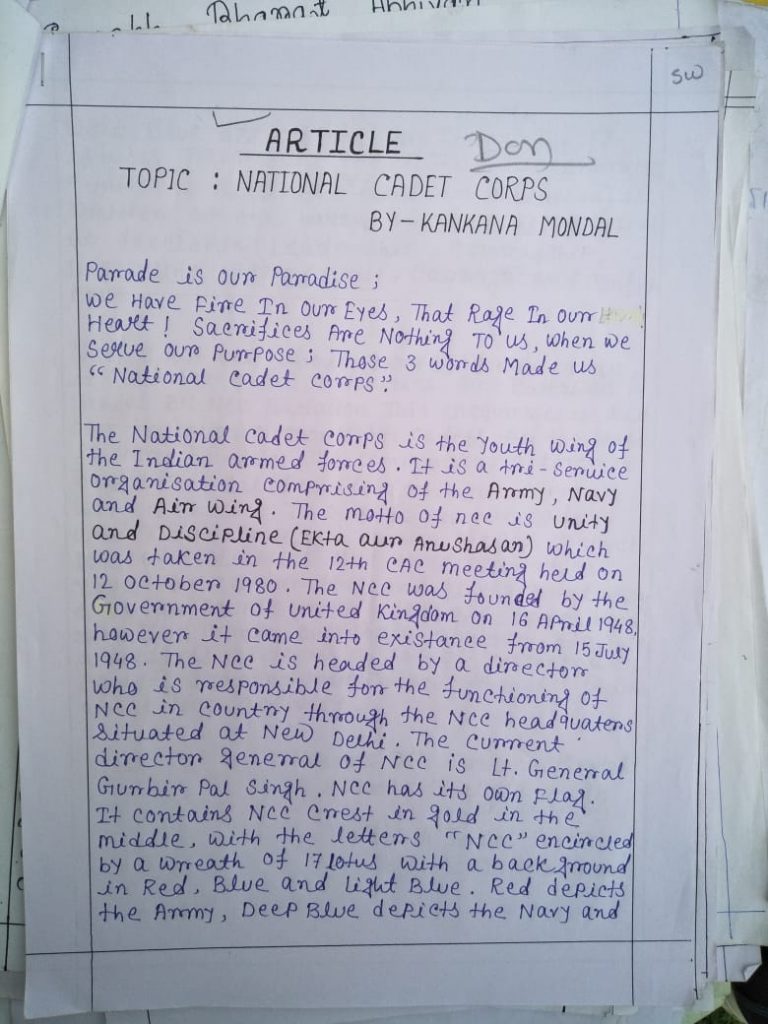 Bharat Abhiyan
1
SW
ARTICLE Don
TOPIC : NATIONAL CADET CORPS
BY - KANKANA MONDAL
Parade is our Paradise ;
We Have Fire In Our Eyes, That Rage In our
Heart ! Sacrifices Are Nothing To us, when we
Serve our Purpose ; Those 3 words Made us
“National Cadet Corps”.
The National Cadet Corps is the Youth wing of
the Indian armed forces. It is a tri-service
organisation comprising of the Army, Navy
and Air wing. The motto of ncc is unity
and Discipline (Ekta aur Anushasan) which
was taken in the 12th CAC meeting held on
12 October 1980. The NCC was founded by the
Government of united Kingdom on 16 April 1948,
however it came into existance from 15 July
1948. The NCC is headed by a director
who is responsible for the functioning of
NCC in country through the NCC headquaters
situated at New Delhi. The current
director general of NCC is Lt. General
Gurbir Pal Singh. NCC has its own Flag.
It contains NCC Crest in gold in the
middle, with the letters “NCC” encircled
by a wreath of 17 lotus with a background
in Red, Blue and Light Blue. Red depicts
the Army, Deep Blue depicts the Navy and